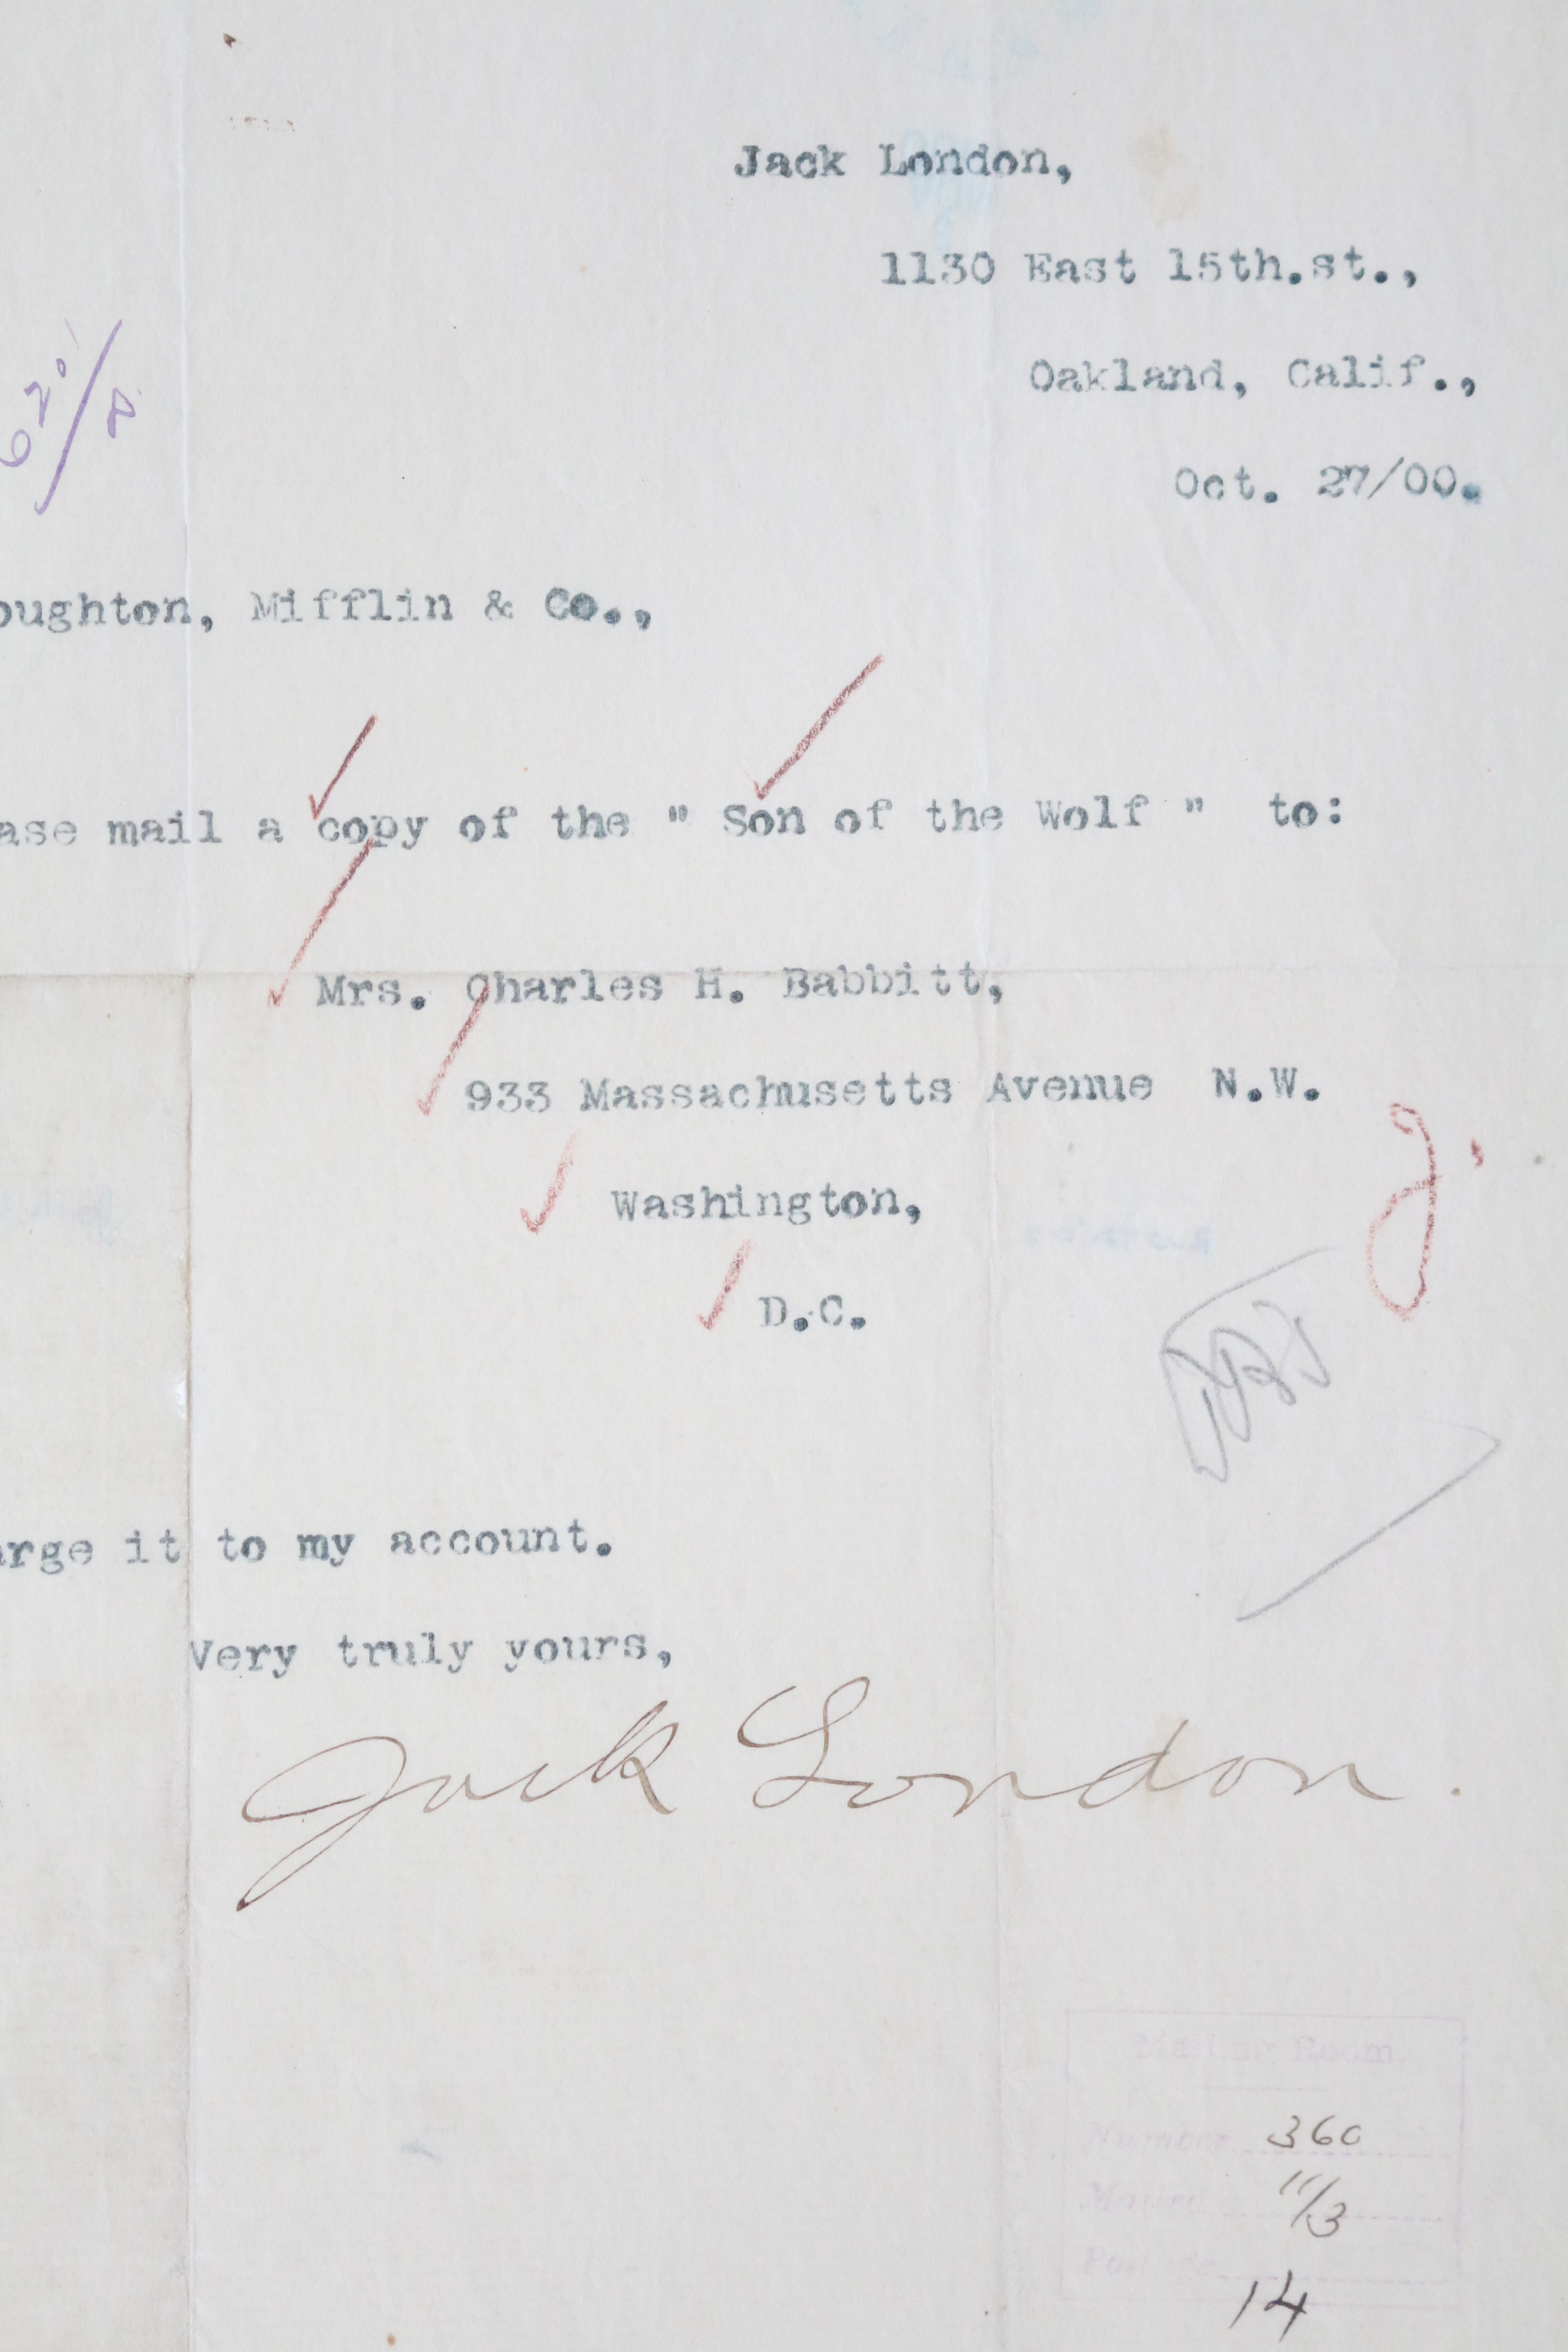 Jack London,
1130 East 15th.st.,
Oakland, Calif.,
Oct. 27/00.
oughton, Mifflin & Co.,
ase mail a copy of the " Son of the Wolf " to:
Mrs. Charles H. Babbitt,
933 Massachusetts Avenue N.W.
Washington,
D.C.
arge it to my account.
Very truly yours,
Jack London.
Mailing Room.
Number 360
Mailed 11/3
Postage 14